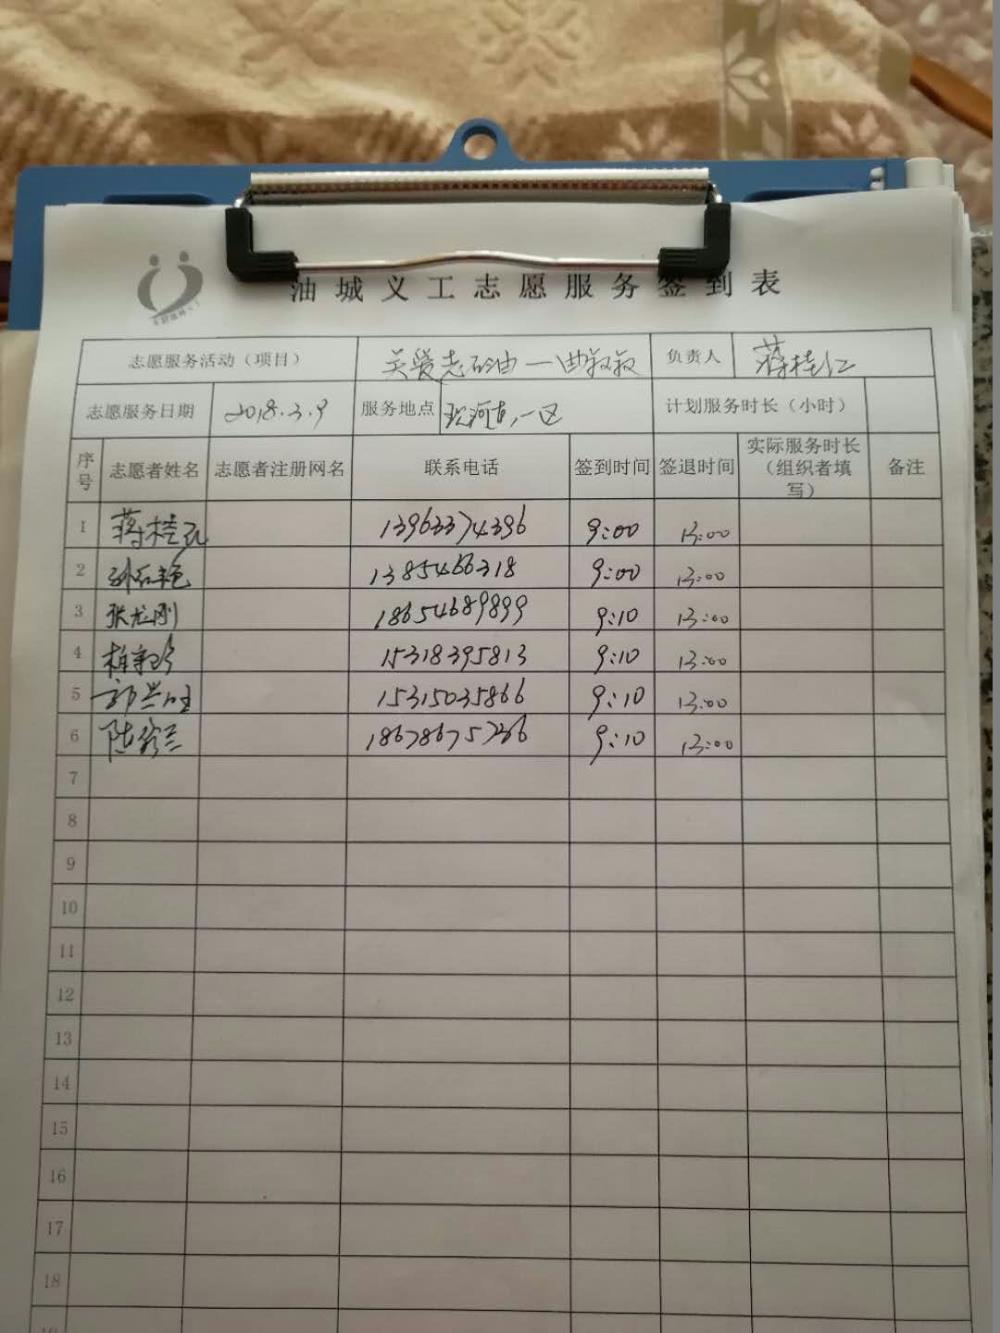 油城义工志愿服务签到表
志愿服务活动（项目） 关爱老石油一曲叔叔 负责人 蒋桂仁
志愿服务日期 2018.3.9 服务地点 一区 计划服务时长（小时）
序号 志愿者姓名 志愿者注册网名 联系电话 签到时间 签退时间 实际服务时长（组织者填写） 备注
1 蒋桂仁 13963374396 9:00 13:00
2 孙红艳 1385466318 9:00 13:00
3 张龙刚 18654689899 9:10 13:00
4 15318395813 9:10 13:00
5 郭兰 15315035866 9:10 13:00
6 陆 9:10 13:00
7
8
9
10
11
12
13
14
15
16
17
18